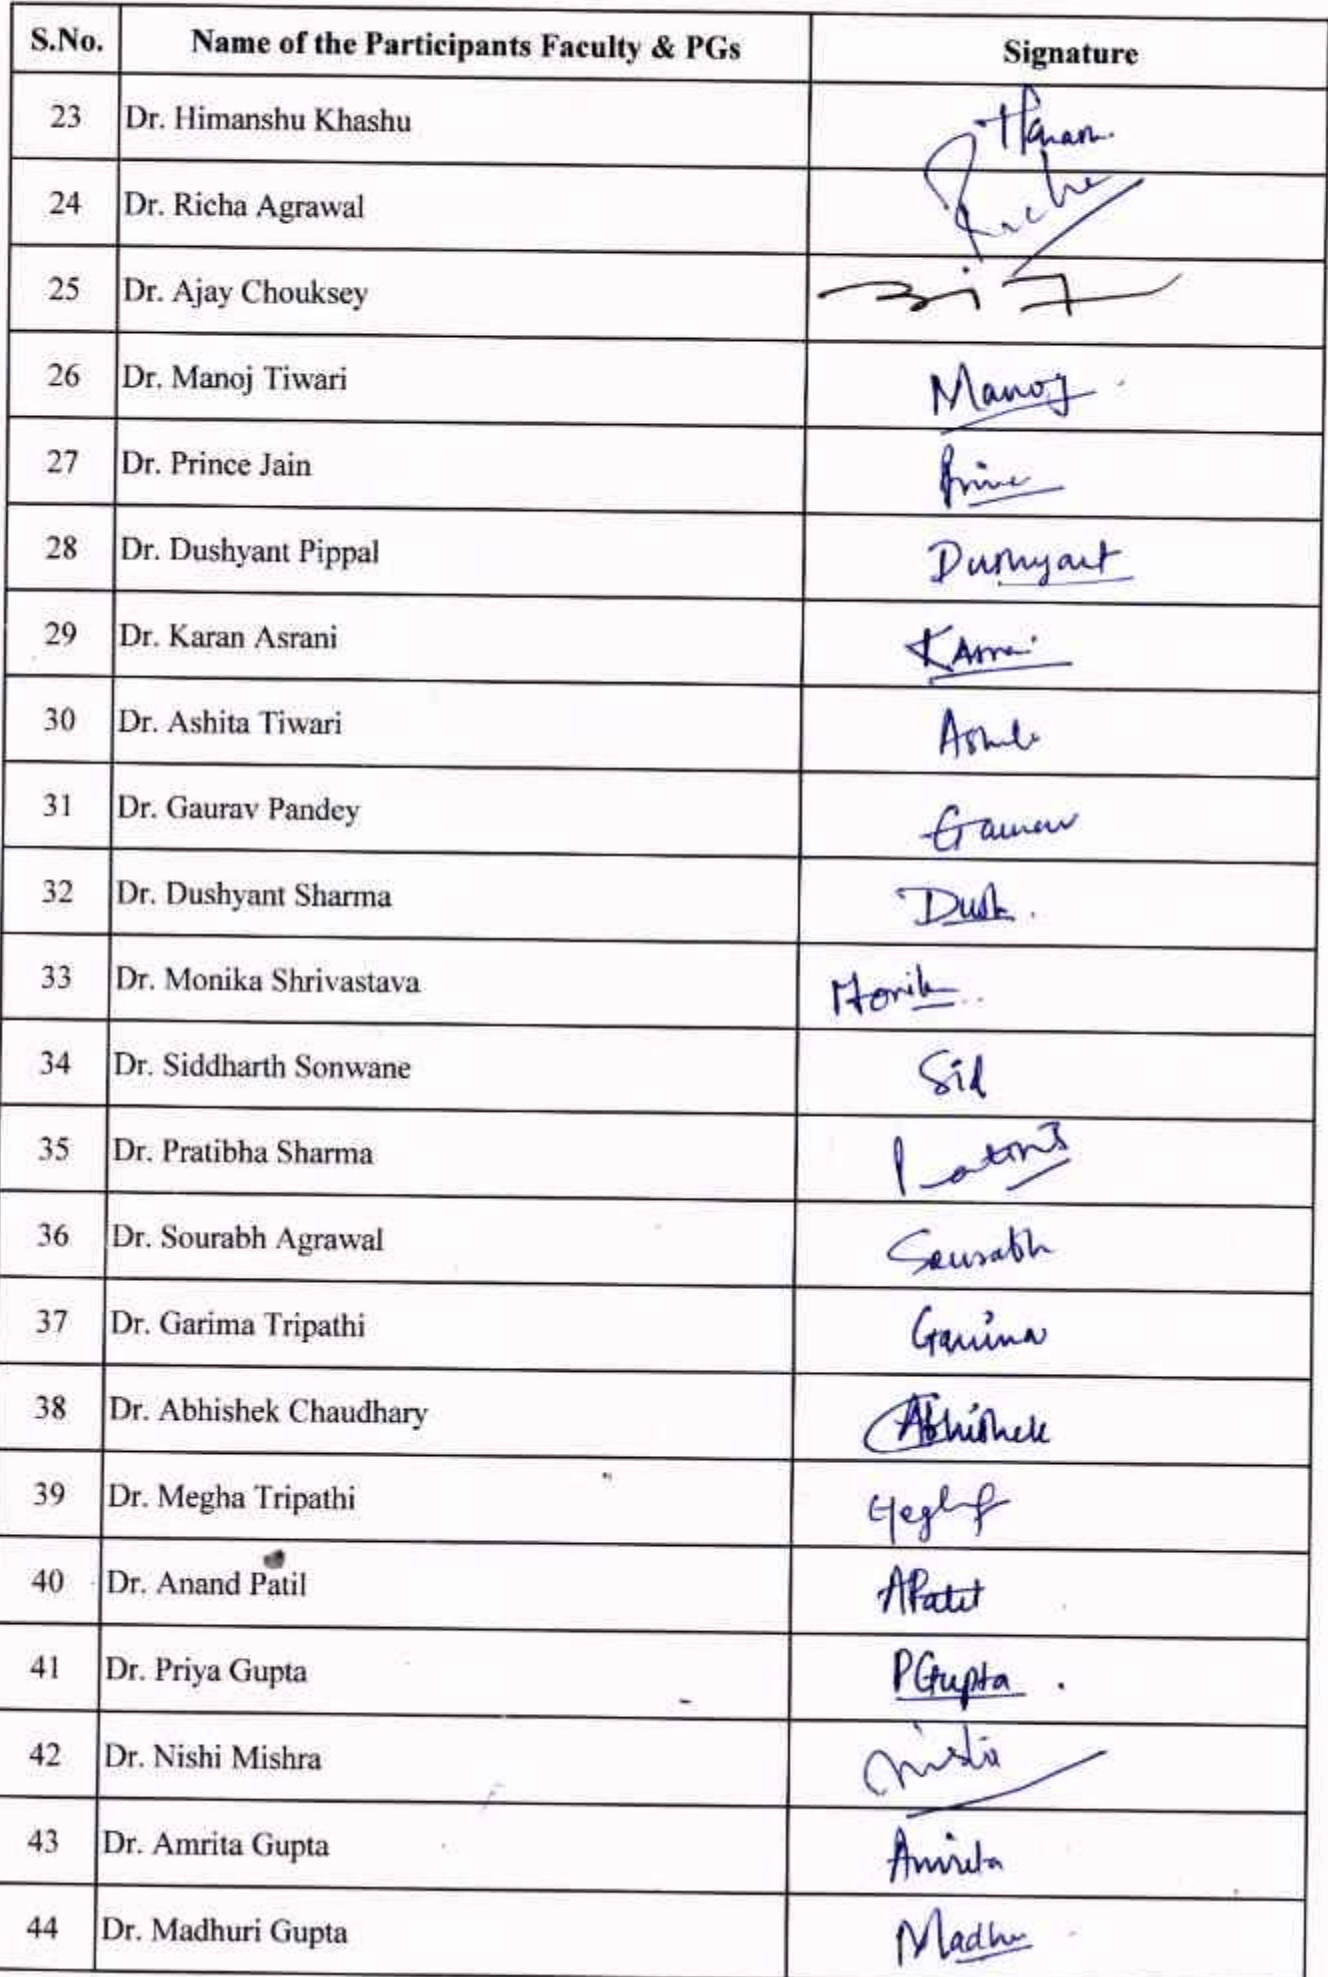 S.No. Name of the Participants Faculty & PGs Signature
23 Dr. Himanshu Khashu
24 Dr. Richa Agrawal
25 Dr. Ajay Chouksey
26 Dr. Manoj Tiwari Manoj
27 Dr. Prince Jain
28 Dr. Dushyant Pippal Dushyant
29 Dr. Karan Asrani
30 Dr. Ashita Tiwari
31 Dr. Gaurav Pandey Gaurav
32 Dr. Dushyant Sharma Dush.
33 Dr. Monika Shrivastava
34 Dr. Siddharth Sonwane Sid
35 Dr. Pratibha Sharma
36 Dr. Sourabh Agrawal Sourabh
37 Dr. Garima Tripathi Garima
38 Dr. Abhishek Chaudhary Abhishek
39 Dr. Megha Tripathi
40 Dr. Anand Patil APatil
41 Dr. Priya Gupta PGupta
42 Dr. Nishi Mishra
43 Dr. Amrita Gupta Amrita
44 Dr. Madhuri Gupta Madhu